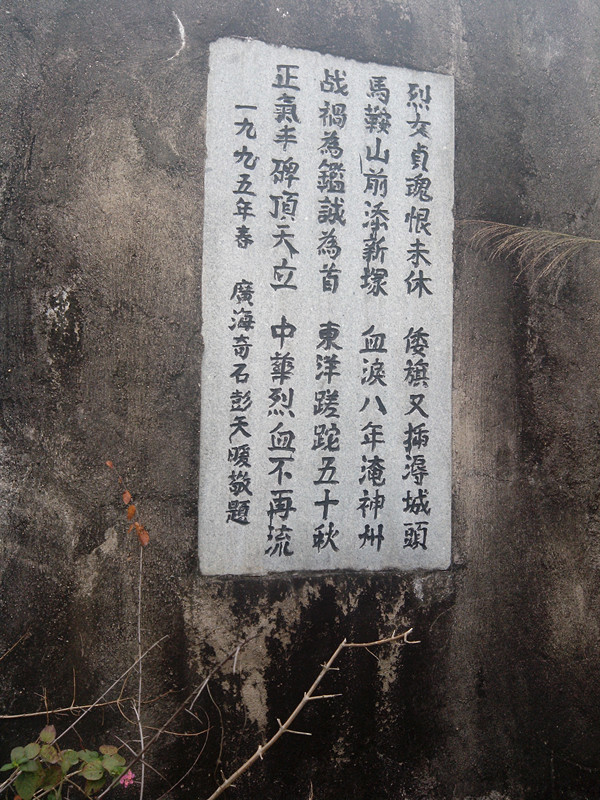 烈女貞魂恨未休　倭旗又插潯城頭
馬鞍山前添新塚　血淚八年淹神州
战禍為鑑誠為首　東洋蹉跎五十秋
正氣丰碑頂天立　中華烈血不再流
一九九五年春　廣海奇石彭天暖敬題